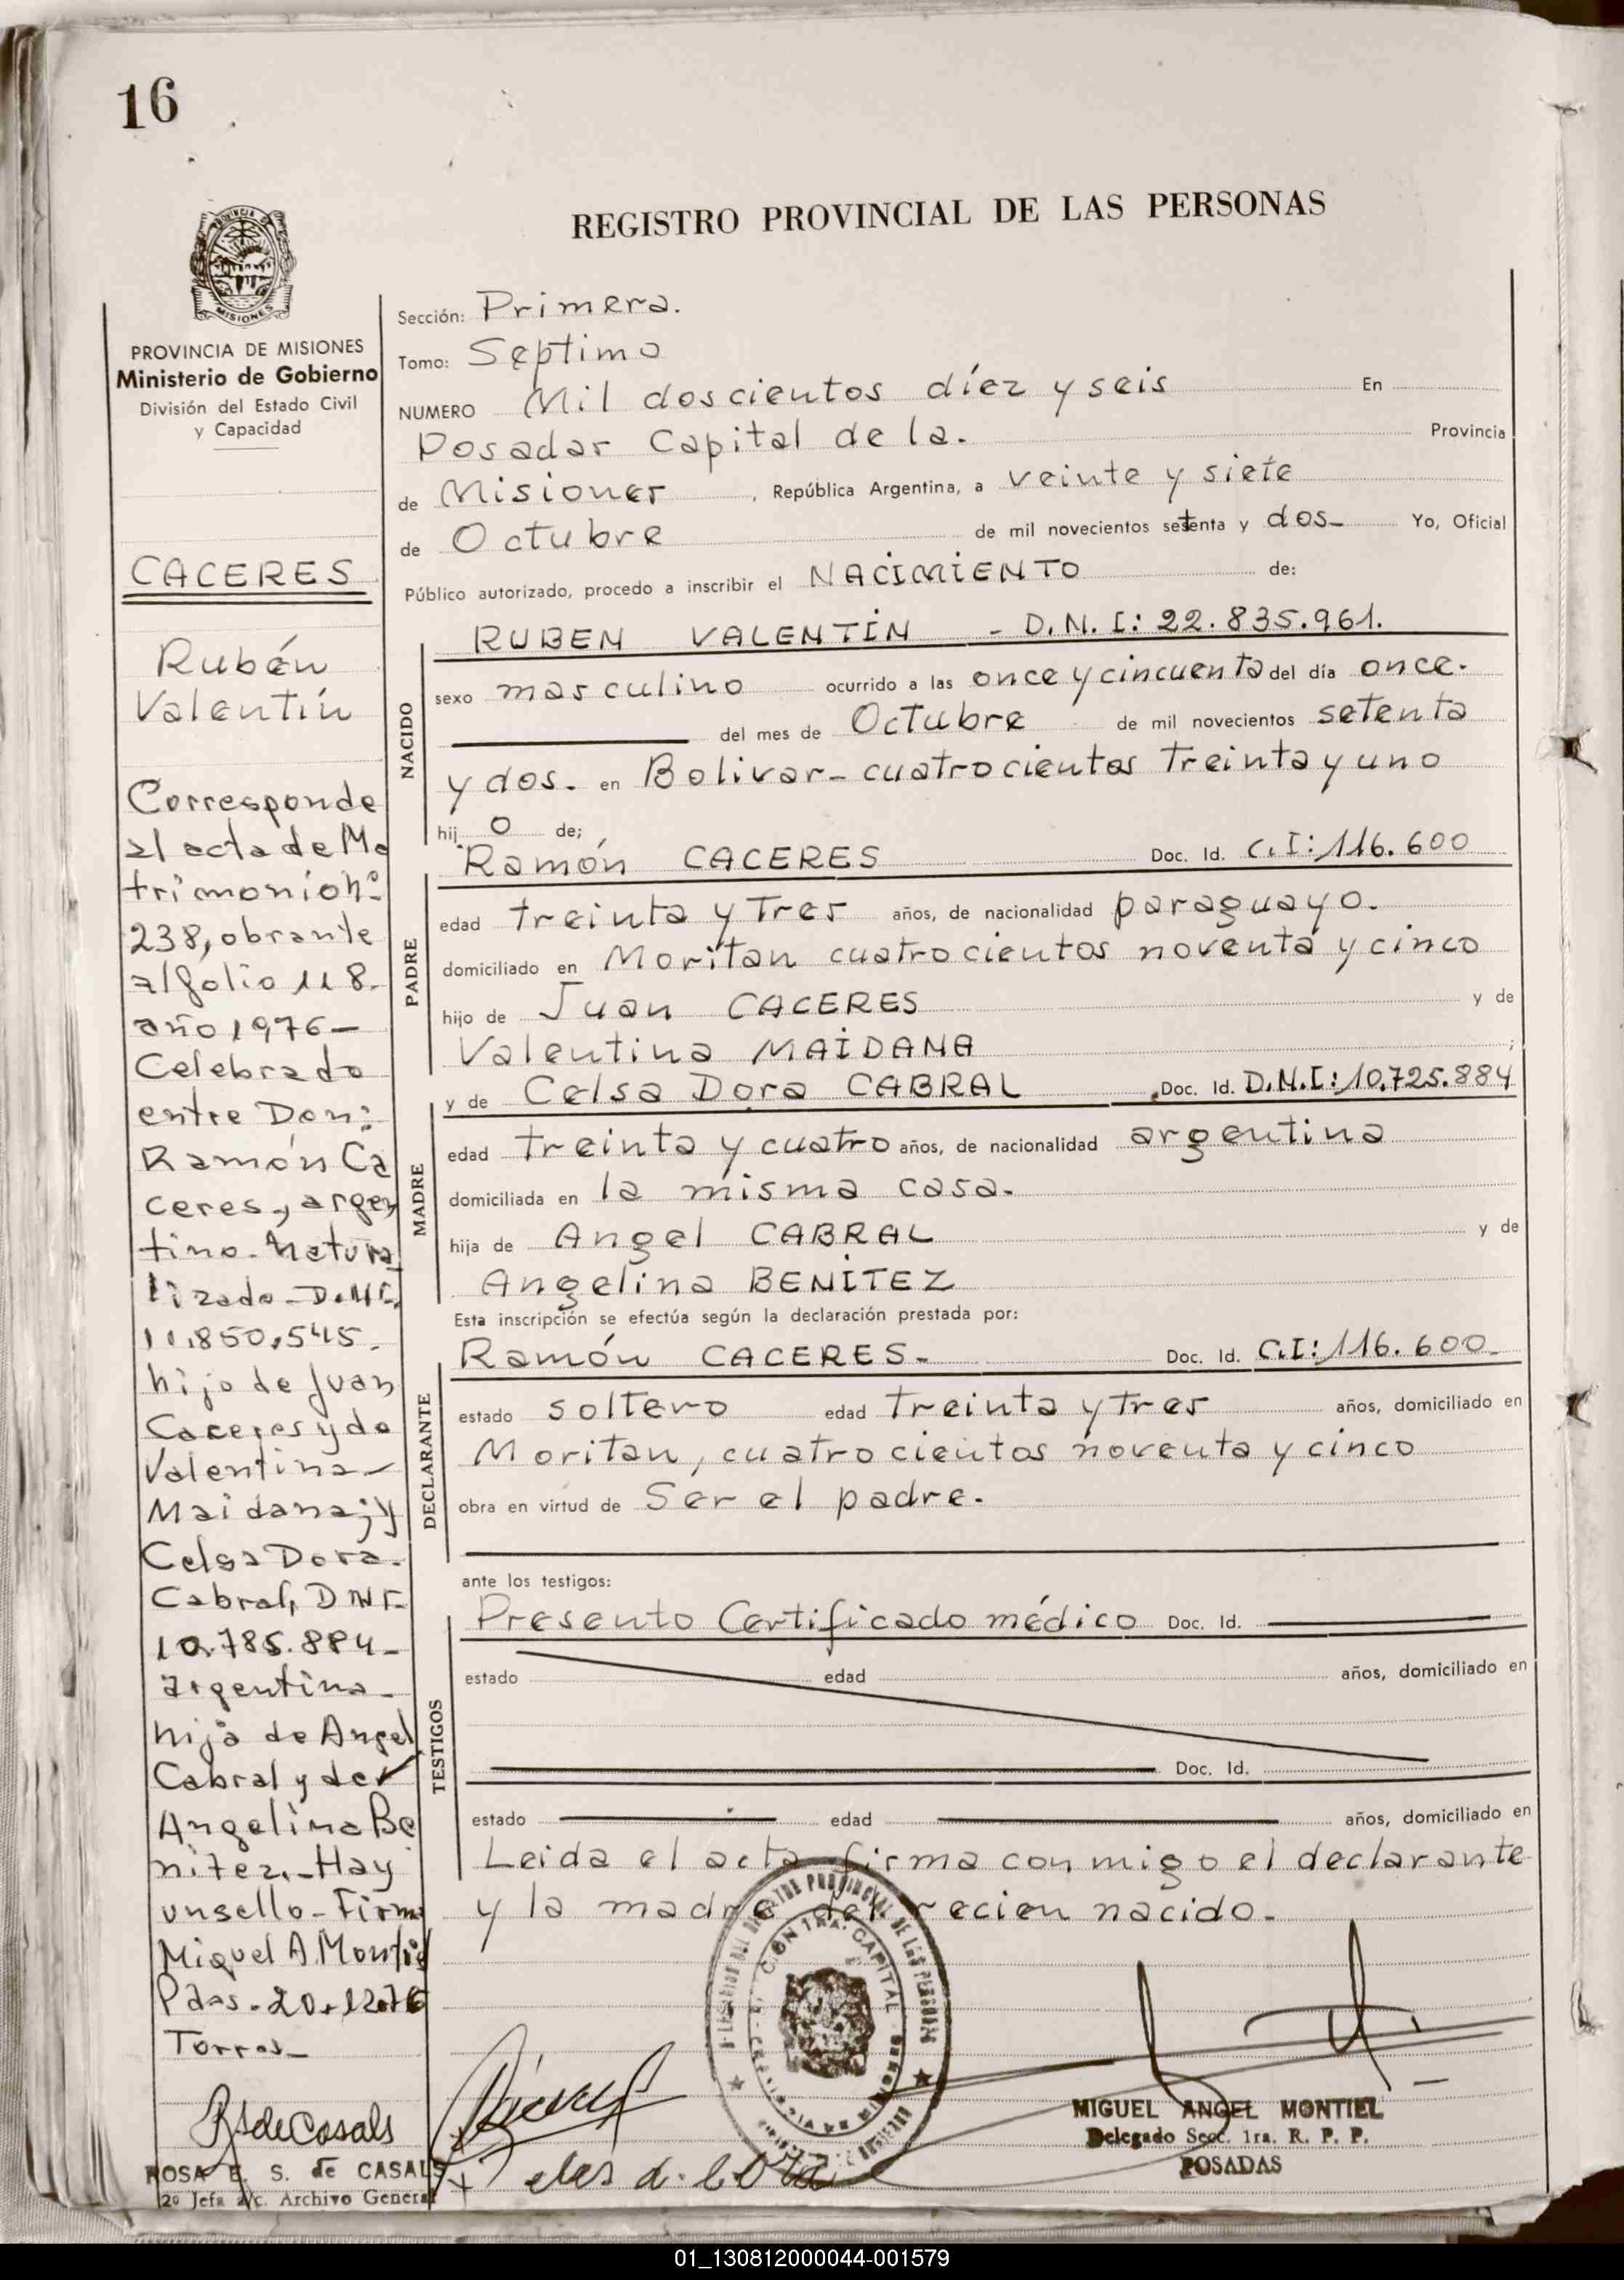 16
REGISTRO PROVINCIAL DE LAS PERSONAS
PROVINCIA DE
MISIONES
PROVINCIA DE MISIONES
Ministerio de Gobierno
División del Estado Civil
y Capacidad
CACERES
Rubén
Valentín
Corresponde
al acta de Ma
trimonio nº
238, obrante
al folio 118.
año 1976-
Celebrado
entre Don:
Ramón Ca
ceres, argen
tino. Natura
lizado - D.N.I.
11.850.545.
hijo de Juan
Caceres y de
Valentina
Maidana; y
Celsa Dora.
Cabral, DNI-
10.785.884-
argentina-
hija de Angel
Cabral y de
Angelina Be
nitez.- Hay
un sello - Firma
Miguel A. Montiel
Pdas. 20.12.76
Torres-
RS de Casals
ROSA E. S. de CASALS
2º Jefa a/c. Archivo General
Sección: Primera.
Tomo: Septimo
NUMERO Mil doscientos díez y seis En
Posadas Capital de la. Provincia
de Misiones, República Argentina, a veinte y siete
de Octubre de mil novecientos setenta y dos- Yo, Oficial
Público autorizado, procedo a inscribir el NACIMIENTO de:
NACIDO
RUBEN VALENTIN - D.N.I: 22.835.961.
sexo masculino ocurrido a las once y cincuenta del día once.
del mes de Octubre de mil novecientos setenta
y dos. en Bolivar- cuatrocientos treinta y uno
hij o de;
PADRE
Ramón CACERES Doc. Id. C.I: 116.600
edad treinta y tres años, de nacionalidad paraguayo.
domiciliado en Moritan cuatrocientos noventa y cinco
hijo de Juan CACERES y de
Valentina MAIDANA ;
MADRE
y de Celsa Dora CABRAL Doc. Id. D.N.I: 10.725.884
edad treinta y cuatro años, de nacionalidad argentina
domiciliada en la misma casa.
hija de Angel CABRAL y de
Angelina BENITEZ
Esta inscripción se efectúa según la declaración prestada por:
DECLARANTE
Ramón CACERES- Doc. Id. C.I: 116.600-
estado soltero edad treinta y tres años, domiciliado en
Moritan, cuatrocientos noventa y cinco
obra en virtud de Ser el padre.
ante los testigos:
TESTIGOS
Presento Certificado médico Doc. Id.
estado edad años, domiciliado en
Doc. Id.
estado edad años, domiciliado en
Leida el acta firma conmigo el declarante
y la madre del recien nacido-
MIGUEL ANGEL MONTIEL
Delegado Secc. 1ra. R. P. P.
POSADAS
01_130812000044-001579